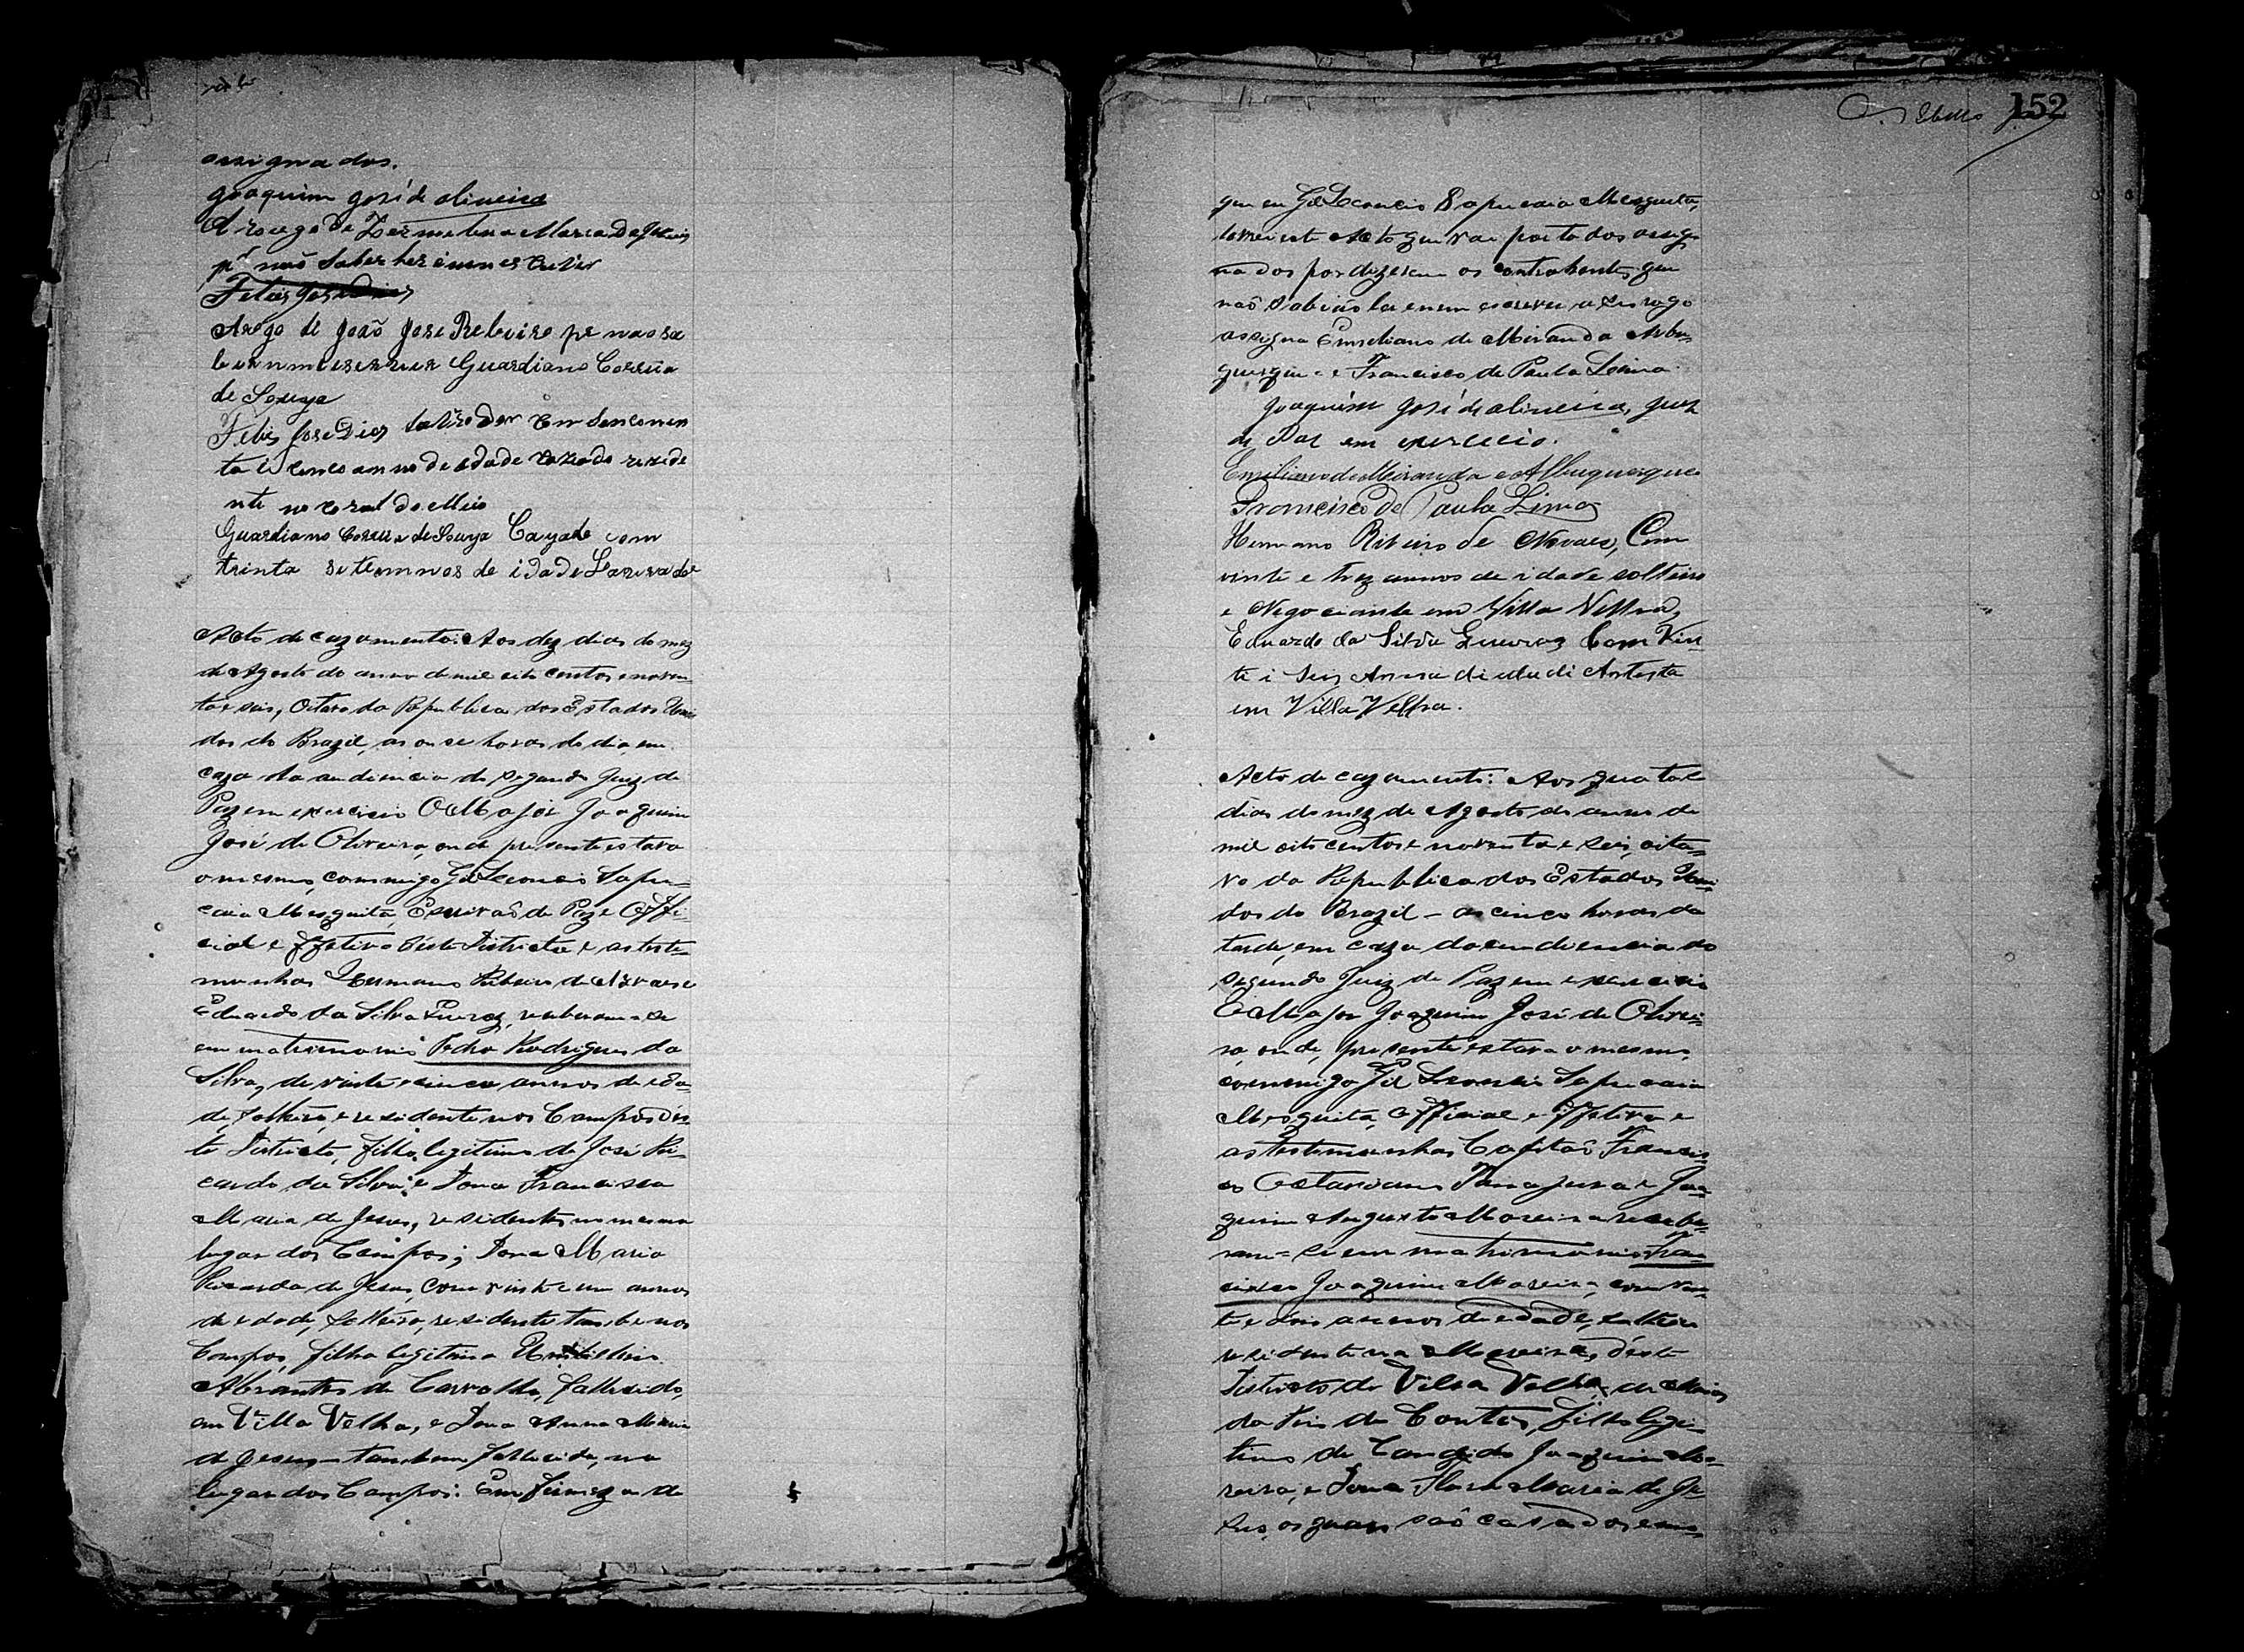 assignados.
Joaquim José de Oliveira
A rogo de Hermelina Maria de Jesus
pr não saber ler enem escrever
Felis José Dias
Arogo de João José Reboiso pr não sa
ber nim escrever Guardiano Correia
de Souza
Felis José Dias lavrador Com sencoen
ta i cinco annos de edade cazado rezide
nte no coral do Meio
Guardiano Correia de Souza Cazado com
trinta sete annos de idade Lavrador
Acto de cazamento: Aos dez dias do mez
de Agosto do anno de mil oito centos e noven
ta e seis, Oitavo da Republica dos Estados Uni
dos do Brazil, as onse horas do dia, em
caza da audiencia do segundo Juiz de
Paz em exercicio O Major Joaquim
José de Oliveira, onde presente estava
o mesmo, commigo Gil Leoncio Sapu=
caia Mesquita, Escrivaõ de Paz e Offi
cial effetivo déste Districto e as teste=
munhas Hermano Ribeiro de Novaes e
Eduardo da Silva Queroz, receberam=se
em matrimonio Pedro Rodrigues da
Silva, de vinte e cinco annos de eda=
de, solteiro, e residente nos Campos dés=
te Districto, filho legitimo de José Ri=
cardo da Silva, e Dona Francisca
Maria de Jesus, residentes no mesmo
lugar dos Campos; Dona Maria
Ricarda de Jesus, com vinte e um annos
de edade, solteira, residente tambe nos
Campos, filha legitima
Abrantes de Carvalho, fallecido,
em Villa Velha, e Dona Anna Maria
de Jesus=tambem fallecida, no
lugar dos Campos. Em firmeza do
152
que eu Gil Leoncio Sapucaia Mesquita,
lavrei este Acto que vai por todos assig
nados por dizerem os contrahentes que
naõ sabiaõ ler enem escrever a seu rogo
assigna Emiliano de Miranda Albu=
querque = e Francisco de Paula Lima.
Joaquim José de Oliveira, juiz
de Paz em exercicio.
Emiliano de Miranda e Albuquerque
Francisco de Paula Lima
Hermano Ribeiro de Novaes, Com
vinte e trez annos de idade solteiro
e Negociante em Villa Velha
Eduardo da Silva Queroz Com Vin
te i Seis Annos di idadi Artista
em Villa Velha.
Acto de cazamento: Aos quatorze
dias do mez de Agosto do anno de
mil oito centos e noventa e seis, oita=
vo da Republica dos Estados Uni=
dos do Brazil - as cinco horas da
tarde, em caza da audiencia do
segundo Juiz de Paz em exercicio
O Major Joaquim José de Olivei=
ra, onde, presente estava o mesmo,
commigo Gil Leoncio Sapucaia
Mesquita, Official e effetivo e
as testemunhas Capitaõ Francis=
co Octaviano Tanajura e Joa=
quim Augusto Moreira recebe=
ram=se em matrimonio Fran=
cisco Joaquim Moreira, com vin=
te e dois annos de edade, solteiro
residente na Moreira, déste
Districto de Villa Velha, de Minas
do Rio de Contas, filho legi=
timo de Candido Joaquim Mo=
reira, e Dona Flora Maria de Je=
sus, os quaes saõ casados em=